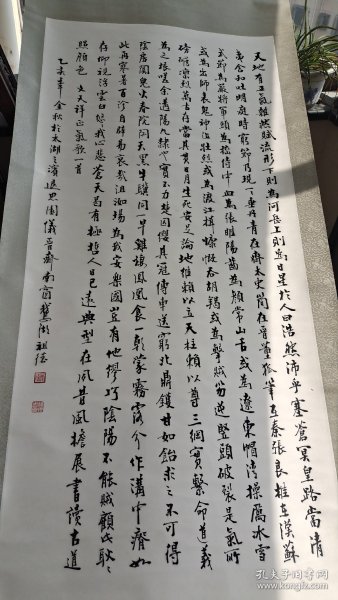 天地有正氣雜然賦流形下則為河岳上則為日星於人曰浩然沛乎塞蒼冥皇路當清
夷含和吐明庭時窮節乃現一一垂丹青在齊太史簡在晉董狐筆在秦張良椎在漢蘇
武節為嚴將軍頭為嵇侍中血為張睢陽齒為顏常山舌或為遼東帽清操厲冰雪
或為出師表鬼神泣壯烈或為渡江楫慷慨吞胡羯或為擊賊笏逆豎頭破裂是氣所
磅礴凜烈萬古存當其貫日月生死安足論地維賴以立天柱賴以尊三綱實繫命道義
為之根嗟余遘陽九隸也實不力楚囚纓其冠傳車送窮北鼎鑊甘如飴求之不可得
陰房闃鬼火春院閟天黑牛驥同一皁雞棲鳳凰食一朝蒙霧露分作溝中瘠如
此再寒暑百沴自辟易哀哉沮洳場為我安樂國豈有他繆巧陰陽不能賊顧此耿耿
在仰視浮雲白悠悠我心悲蒼天曷有極哲人日已遠典型在夙昔風檐展書讀古道
照顏色 文天祥正氣歌一首
乙亥年金秋於太湖之濱退思園儀晉齋南窗 祖德
孔夫子旧书网